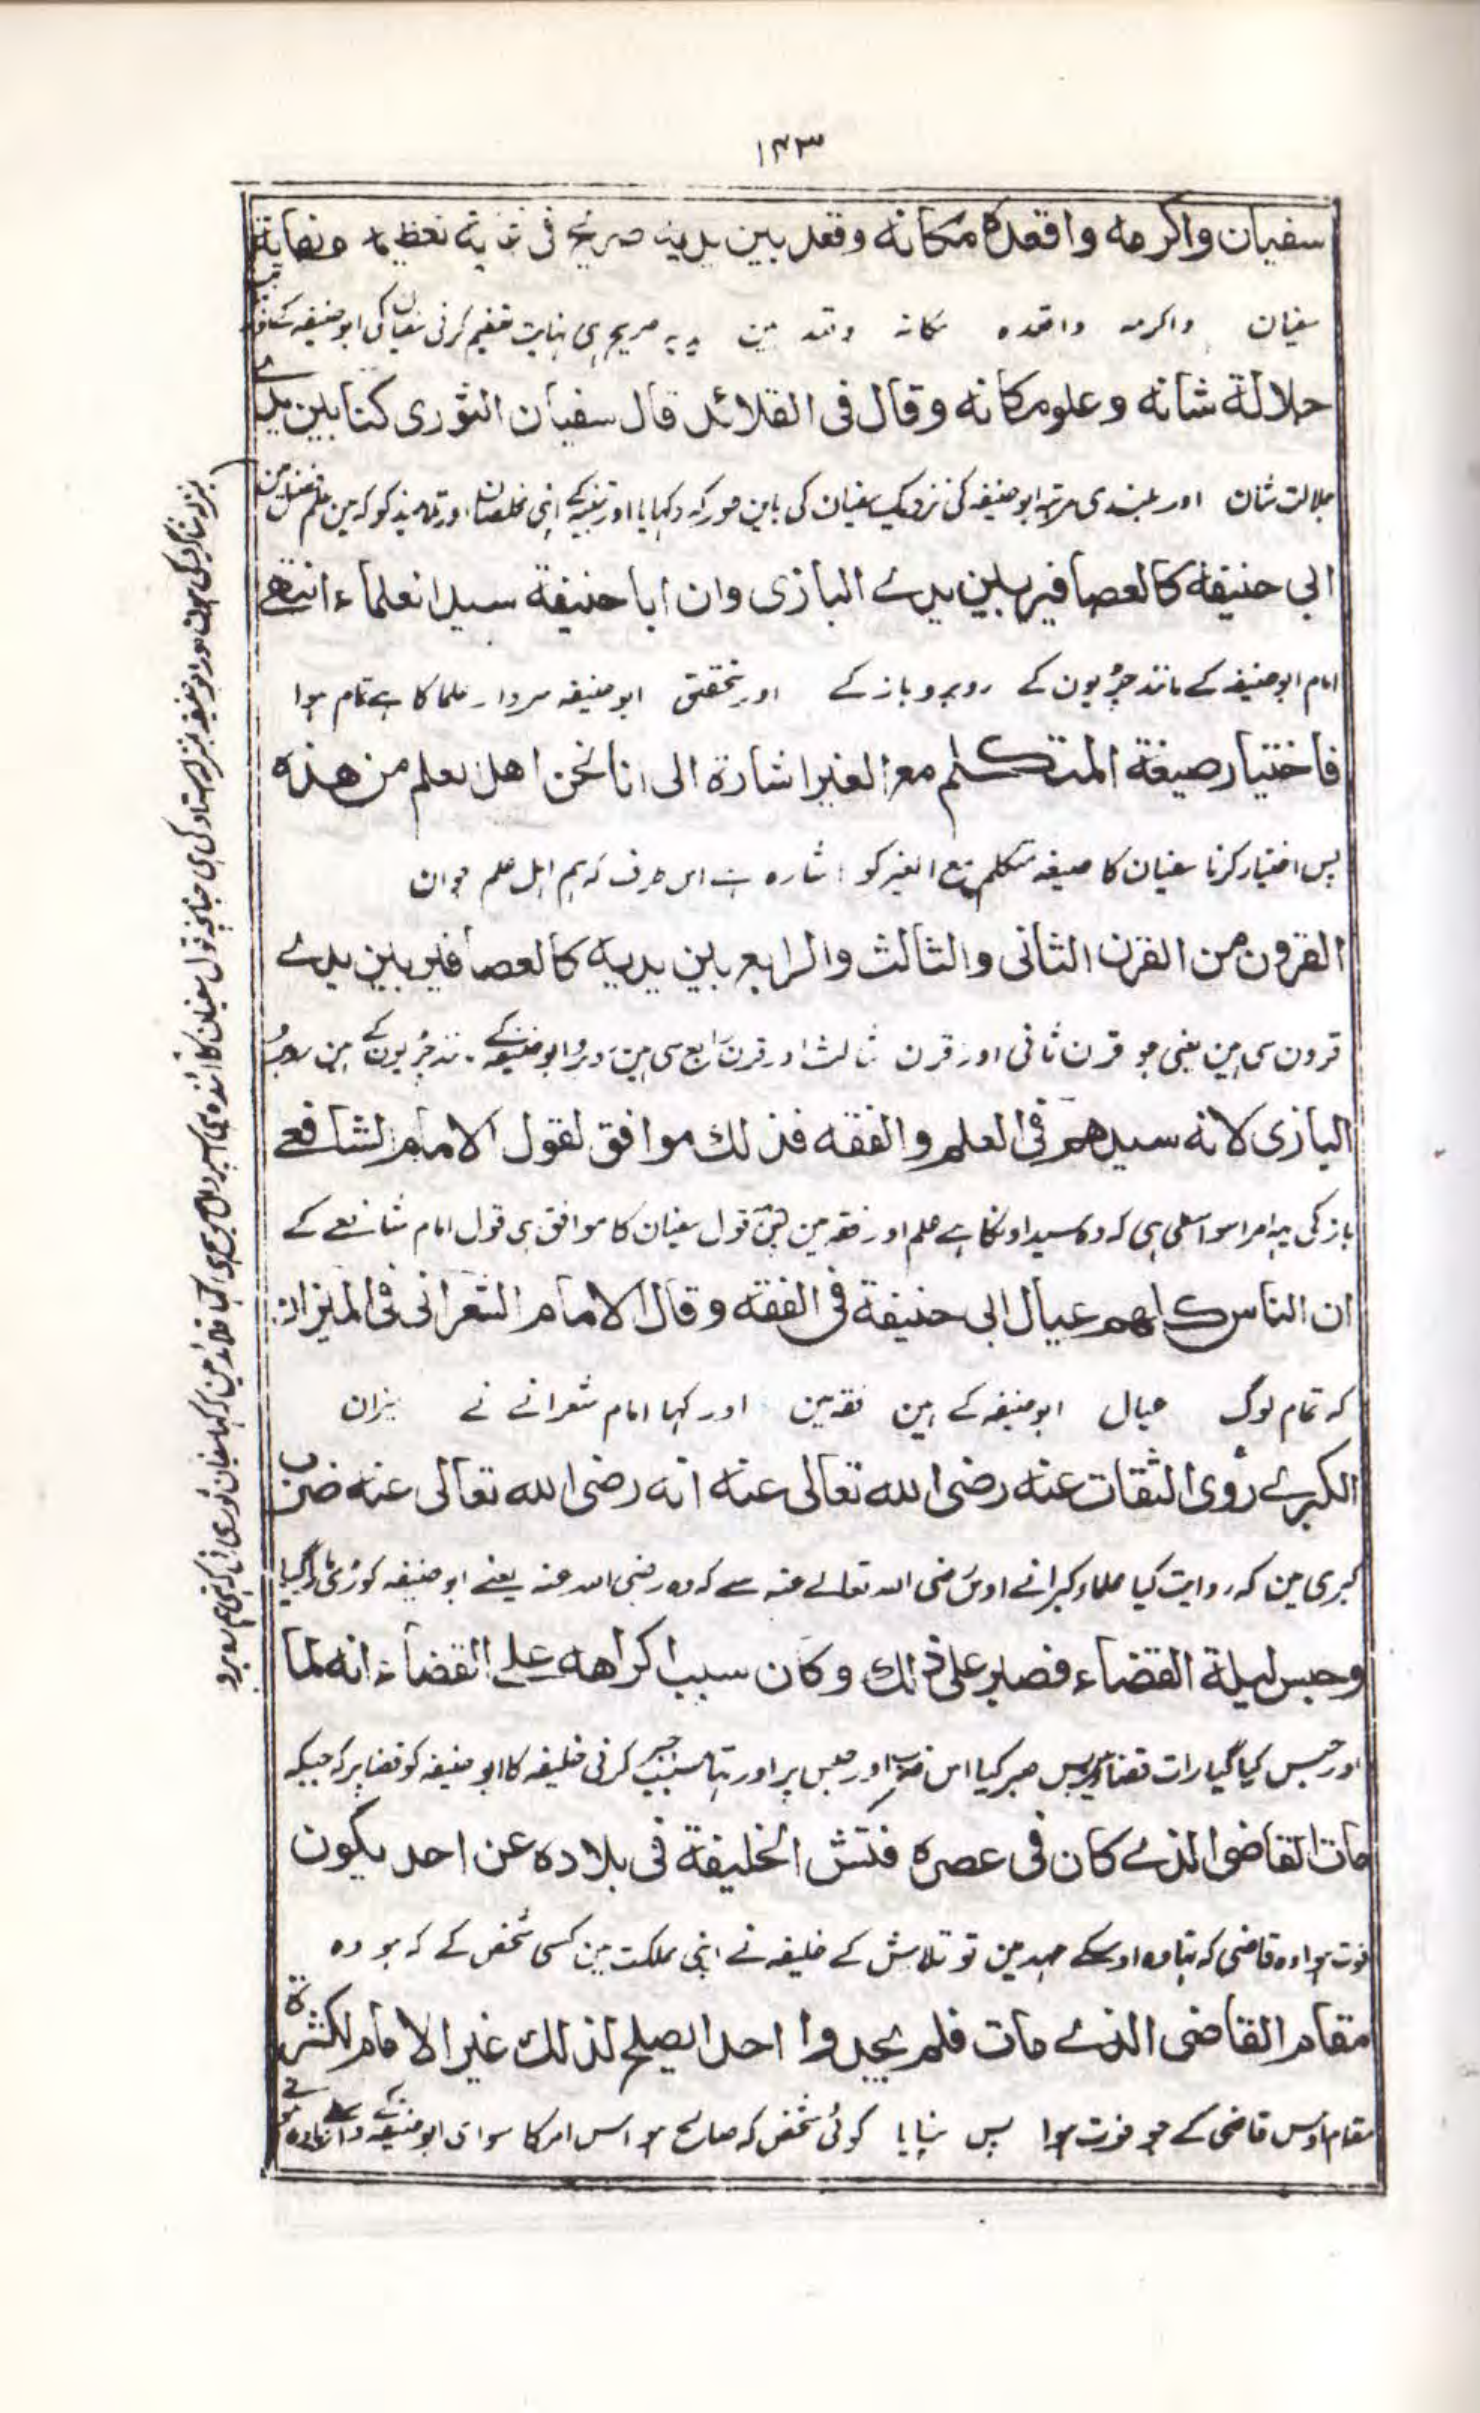 ۱۴۳
سفيان واكرمه واقعده مكانه وقعد بين يديه صريح فى غاية تعظيمه ونهاية
سفیان واکرمه واقعده مکانه وقعد بین یدیه صریح ہی نہایت تعظیم کرنی سفیان کی ابو حنیفہ کے
جلالة شانه وعلو مكانه وقال فى القلائد قال سفيان الثورى كنا بين يدے
جلالت شان اور بلندی مرتبہ ابو حنیفہ کی نزدیک سفیان کی باین طور کہ دکہایا اور اپنی اور تلامیذ کو کہ مین
ابى حنيفة كالعصافير بين يدے البازى وان ابا حنيفة سيد العلماء انتهے
امام ابو حنیفہ کے مانند چڑیون کے روبرو باز کے اور تحقیق ابو حنیفہ سردار علما کا ہے تمام ہوا
فاختيار صيغة المتكلم مع الغير اشارة الى انا نحن اهل العلم من هذه
پس اختیار کرنا سفیان کا صیغہ متکلم مع الغیر کو اشارہ ہے اس طرف کہ ہم اہل علم جو ان
القرون من القرن الثانى والثالث والرابع بين يديه كالعصافير بين يدے
قرون سی ہین یعنی جو قرن ثانی اور قرن ثالث اور قرن رابع سی ہین روبرو ابو حنیفہ کے مانند چڑیون کے ہین روبرو
البازى لانه سيدهم فى العلم والفقه فذلك موافق لقول الامام الشافعے
باز کی یہ امر اسواسطی ہی کہ وہ سید اونکا ہے علم اور فقہ مین پس قول سفیان کا موافق ہی قول امام شافعے کے
ان الناس كلهم عيال ابى حنيفة فى الفقه وقال الامام الشعرانى فى الميزان
کہ تمام لوگ عیال ابو حنیفہ کے ہین فقہ مین اور کہا امام شعرانے نے میزان
الكبرے روى الثقات عنه رضى الله تعالى عنه انه رضى الله تعالى عنه ضرب
کبری مین کہ روایت کیا علماء کبرانے اوس رضی اللہ تعالے عنہ سے کہ وہ رضی اللہ عنہ یعنے ابو حنیفہ کوڑی مارا گیا
وحبس ليلة القضاء فصبر على ذلك وكان سبب اكراهه على القضاء انه لما
اور حبس کیا گیا رات قضا پس صبر کیا اس ضرب اور حبس پر اور تہا سبب جبر کرنی خلیفہ کا ابو حنیفہ کو قضا پر کہ جبکہ
مات القاضى الذے كان فى عصره فتش الخليفة فى بلاده عن احد يكون
فوت ہوا وہ قاضی کہ تہا وہ اوسکے عہد مین تو تلاش کے خلیفہ نے اپنی مملکت مین کسی شخص کے کہ ہو وہ
مقام القاضى الذے مات فلم يجدوا احدا يصلح لذلك غير الامام لكثرة
مقام اوس قاضی کے جو فوت ہوا پس نپایا کوئی شخص کہ صالح ہو اس امر کا سوای ابو حنیفہ کے